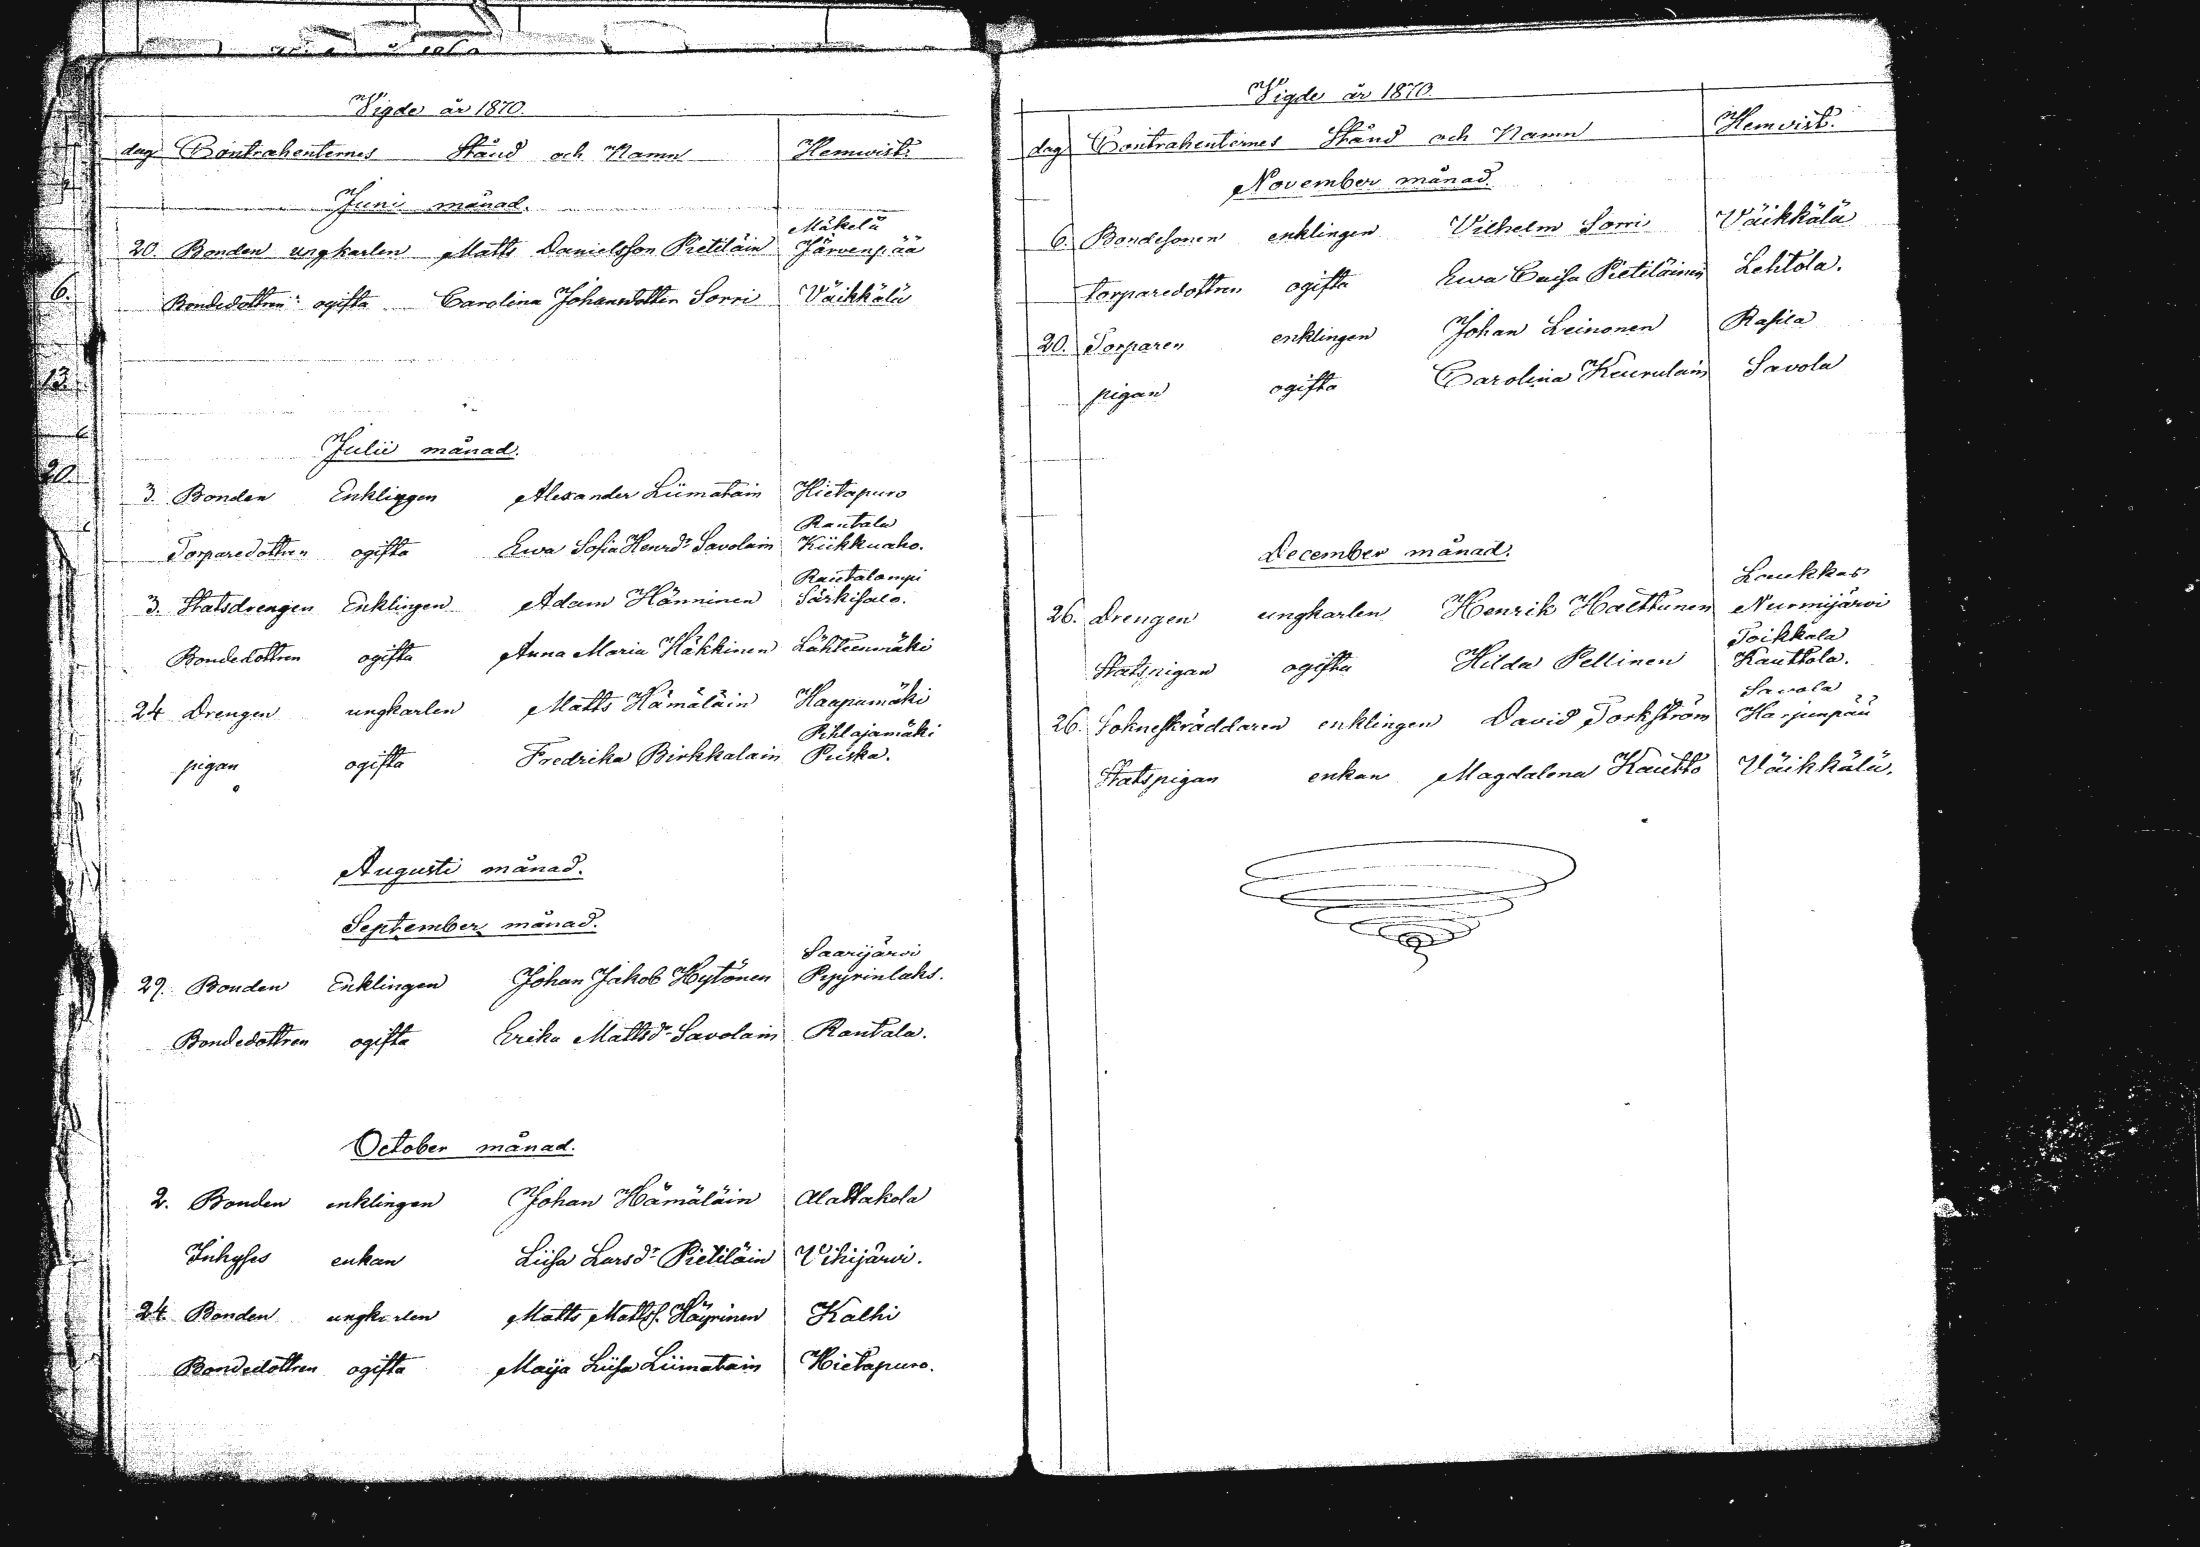 Vigde år 1870.
dag Contrahenternes Stånd och Namn Hemvist.
Juni månad.
Mäkelä
20. Bonden ungkarlen Matts Danielsson Pietiläin Järvenpää
Bondedottren ogifta Carolina Johansdotter Sorri Väikkälä
Julii månad.
3. Bonden Enklingen Alexander Liimatain Hietapuro
Rautala
Torparedottren ogifta Ewa Sofia Henrdr Savolain Kiikkuaho.
Rautalampi
3. Statsdrengen Enklingen Adam Hänninen Särkisalo.
Bondedottren ogifta Anna Maria Häkkinen Lähteenmäki
24 Drengen ungkarlen Matts Hämäläin Haapamäki
Pihlajamäki
pigan ogifta Fredrika Birkkalain Puska.
Augusti månad.
September månad.
Saarijärvi
29. Bonden Enklingen Johan Jakob Hytönen Pyyrinlaks.
Bondedottren ogifta Erika Mattsdr Savolain Rautala.
October månad.
2. Bonden enklingen Johan Hämäläin Alattakola
Inhyses enkan Liisa Larsdr Pietiläin Vihijärvi.
24. Bonden ungkarlen Matts Mattss. Häyrinen Kalhi
Bondedottren ogifta Maija Liisa Liimatain Hietapuro.
6.
13.
20.
Vigde år 1870.
dag Contrahenternes Stånd och Namn Hemvist.
November månad.
6. Bondesonen enklingen Vilhelm Sorri Väikkälä
torparedottren ogifta Ewa Caisa Pietiläinen Lehtola.
20. Torparen enklingen Johan Leinonen Rasila
pigan ogifta Carolina Keurulain Savola
December månad.
Laukkas
26. Drengen ungkarlen Henrik Halttunen Nurmijärvi
Toikkala
Statspigan ogifta Hilda Pellinen Kauttola.
Savola
26. Sockneskräddaren enklingen David Torkström Harjunpää
Statspigan enkan Magdalena Kautto Väikkälä.